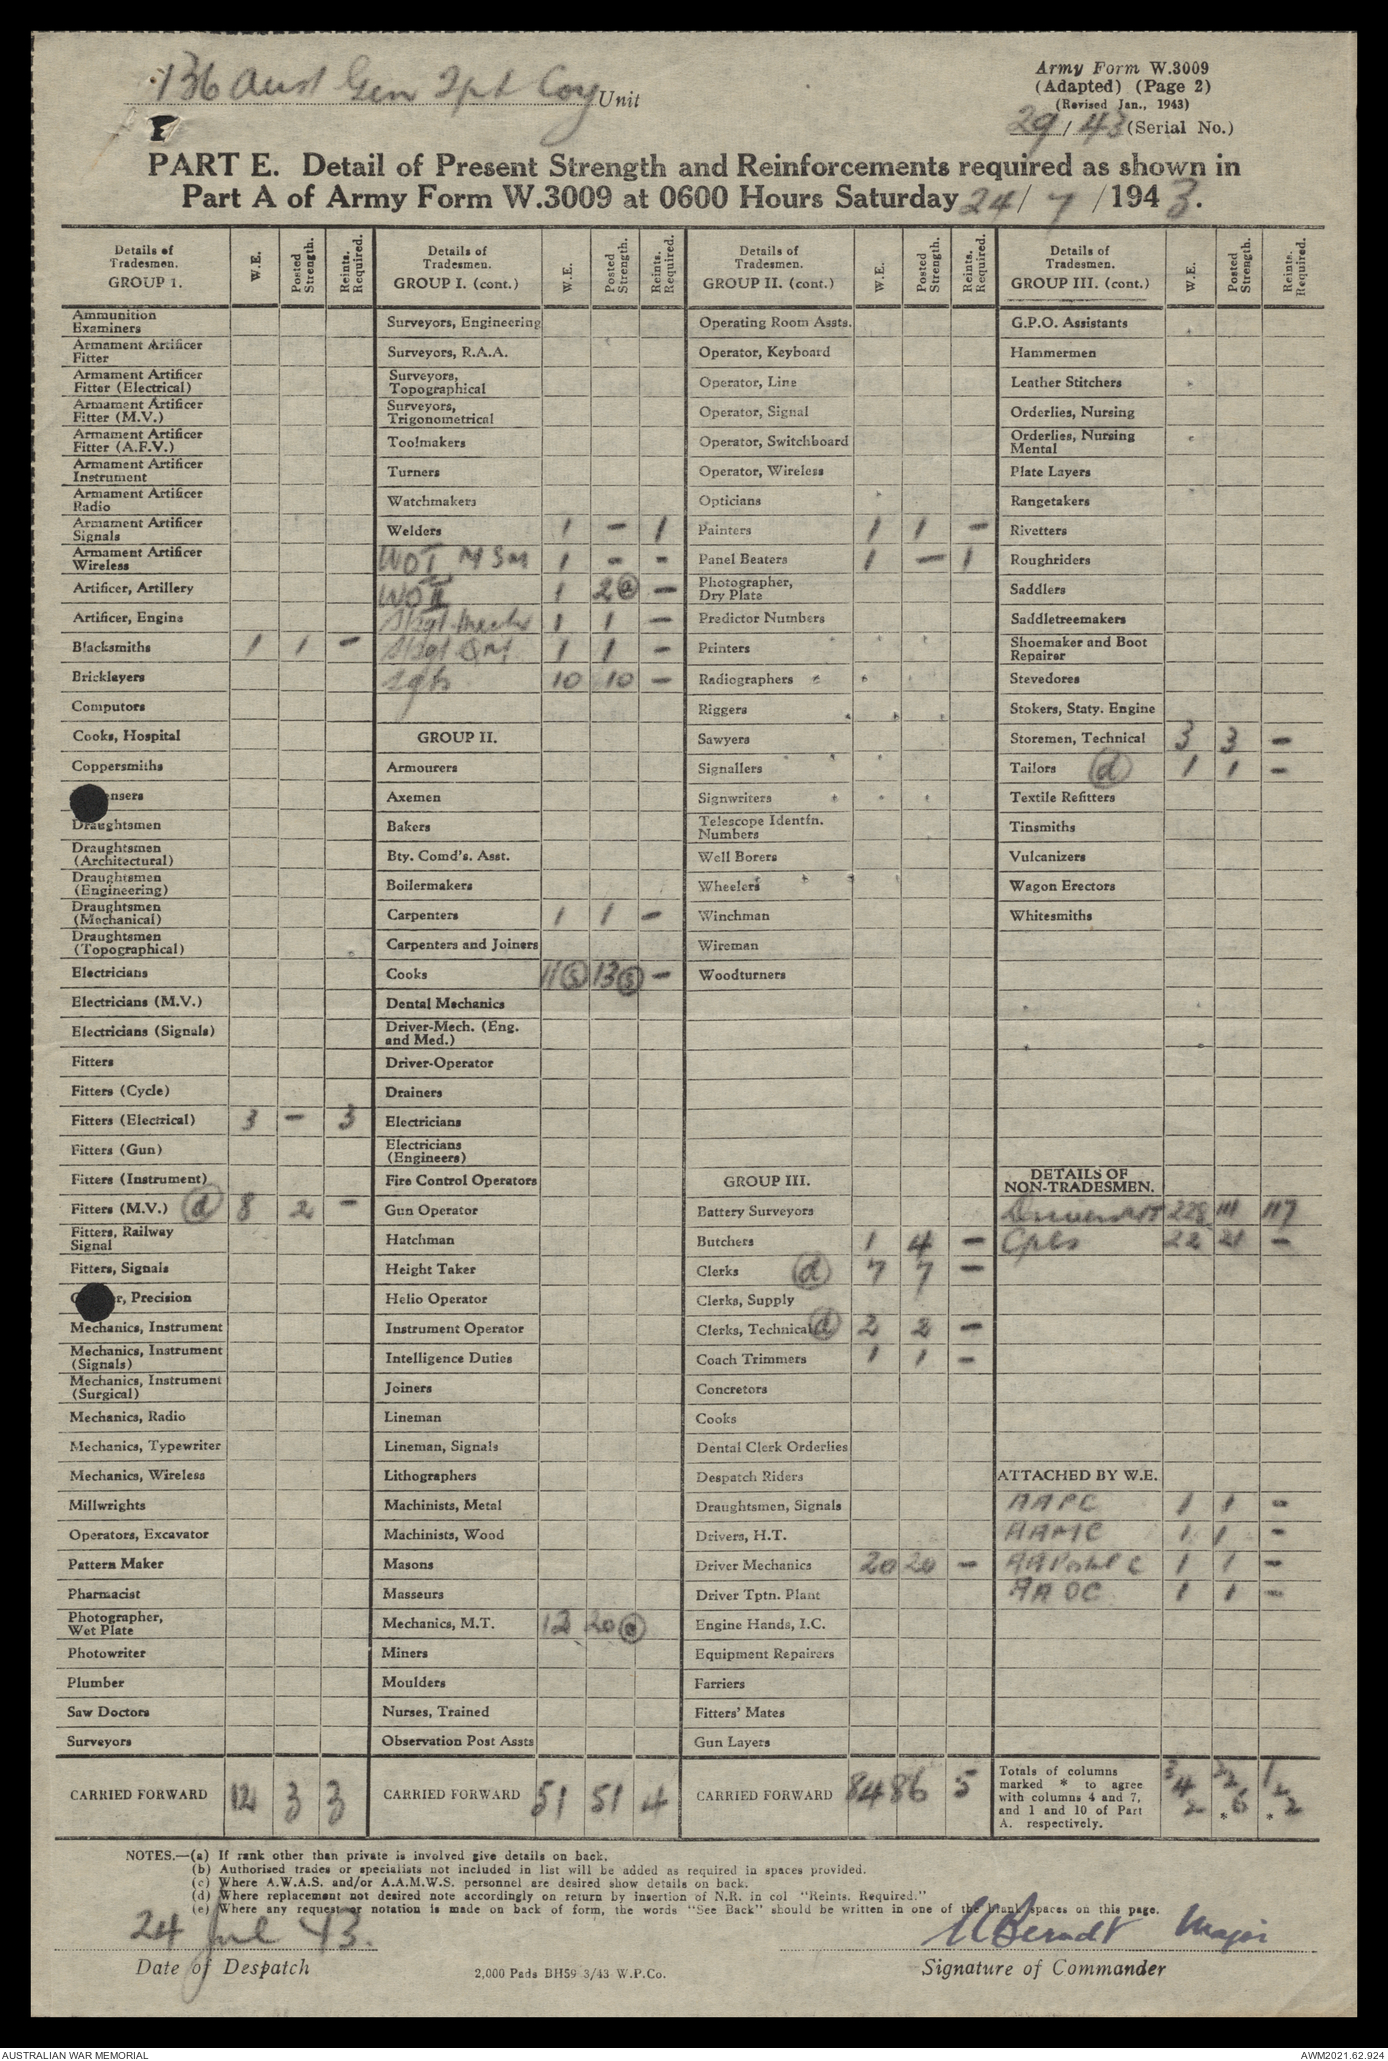 136 Aust Gen Tpt Coy Unit
Army Form W.3009
(Adapted) (Page 2)
(Revised Jan., 1943)
29 / 43 (Serial No.)
PART E. Detail of Present Strength and Reinforcements required as shown in
Part A of Army Form W.3009 at 0600 Hours Saturday 24 / 7 / 1943.
Details of Tradesmen. GROUP 1. W.E. Posted Strength. Reints. Required.
Ammunition Examiners
Armament Artificer Fitter
Armament Artificer Fitter (Electrical)
Armament Artificer Fitter (M.V.)
Armament Artificer Fitter (A.F.V.)
Armament Artificer Instrument
Armament Artificer Radio
Armament Artificer Signals
Armament Artificer Wireless
Artificer, Artillery
Artificer, Engine
Blacksmiths 1 1 -
Bricklayers
Computors
Cooks, Hospital
Coppersmiths
nsers
Draughtsmen
Draughtsmen (Architectural)
Draughtsmen (Engineering)
Draughtsmen (Mechanical)
Draughtsmen (Topographical)
Electricians
Electricians (M.V.)
Electricians (Signals)
Fitters
Fitters (Cycle)
Fitters (Electrical) 3 - 3
Fitters (Gun)
Fitters (Instrument)
Fitters (M.V.) (d) 8 2 -
Fitters, Railway Signal
Fitters, Signals
r, Precision
Mechanics, Instrument
Mechanics, Instrument (Signals)
Mechanics, Instrument (Surgical)
Mechanics, Radio
Mechanics, Typewriter
Mechanics, Wireless
Millwrights
Operators, Excavator
Pattern Maker
Pharmacist
Photographer, Wet Plate
Photowriter
Plumber
Saw Doctors
Surveyors
CARRIED FORWARD 12 3 3
Details of Tradesmen. GROUP I. (cont.) W.E. Posted Strength. Reints. Required.
Surveyors, Engineering
Surveyors, R.A.A.
Surveyors, Topographical
Surveyors, Trigonometrical
Toolmakers
Turners
Watchmakers
Welders 1 - 1
WO I MSM 1 - -
WO II 1 2 (a) -
S/Sgt Mech 1 1 -
S/Sgt QM 1 1 -
Sgts 10 10 -
GROUP II.
Armourers
Axemen
Bakers
Bty. Comd's. Asst.
Boilermakers
Carpenters 1 1 -
Carpenters and Joiners
Cooks 11 13 -
Dental Mechanics
Driver-Mech. (Eng. and Med.)
Driver-Operator
Drainers
Electricians
Electricians (Engineers)
Fire Control Operators
Gun Operator
Hatchman
Height Taker
Helio Operator
Instrument Operator
Intelligence Duties
Joiners
Lineman
Lineman, Signals
Lithographers
Machinists, Metal
Machinists, Wood
Masons
Masseurs
Mechanics, M.T. 12 20 (a)
Miners
Moulders
Nurses, Trained
Observation Post Assts
CARRIED FORWARD 51 51 4
Details of Tradesmen. GROUP II. (cont.) W.E. Posted Strength. Reints. Required.
Operating Room Assts.
Operator, Keyboard
Operator, Line
Operator, Signal
Operator, Switchboard
Operator, Wireless
Opticians
Painters 1 1 -
Panel Beaters 1 - 1
Photographer, Dry Plate
Predictor Numbers
Printers
Radiographers
Riggers
Sawyers
Signallers
Signwriters
Telescope Identfn. Numbers
Well Borers
Wheelers
Winchman
Wireman
Woodturners
GROUP III.
Battery Surveyors
Butchers 1 4 -
Clerks (d) 7 7 -
Clerks, Supply
Clerks, Technical (d) 2 2 -
Coach Trimmers 1 1 -
Concretors
Cooks
Dental Clerk Orderlies
Despatch Riders
Draughtsmen, Signals
Drivers, H.T.
Driver Mechanics 20 20 -
Driver Tptn. Plant
Engine Hands, I.C.
Equipment Repairers
Farriers
Fitters' Mates
Gun Layers
CARRIED FORWARD 84 86 5
Details of Tradesmen. GROUP III. (cont.) W.E. Posted Strength. Reints. Required.
G.P.O. Assistants
Hammermen
Leather Stitchers
Orderlies, Nursing
Orderlies, Nursing Mental
Plate Layers
Rangetakers
Rivetters
Roughriders
Saddlers
Saddletreemakers
Shoemaker and Boot Repairer
Stevedores
Stokers, Staty. Engine
Storemen, Technical 3 3 -
Tailors (d) 1 1 -
Textile Refitters
Tinsmiths
Vulcanizers
Wagon Erectors
Whitesmiths
DETAILS OF NON-TRADESMEN.
Drivers MT 228 111 117
Cpls 22 21 -
ATTACHED BY W.E.
AAPC 1 1 -
AAMC 1 1 -
AAPostal C 1 1 -
AAOC 1 1 -
Totals of columns marked * to agree with columns 4 and 7, and 1 and 10 of Part A. respectively. 342 226 * 122 *
NOTES.—(a) If rank other than private is involved give details on back.
(b) Authorised trades or specialists not included in list will be added as required in spaces provided.
(c) Where A.W.A.S. and/or A.A.M.W.S. personnel are desired show details on back.
(d) Where replacement not desired note accordingly on return by insertion of N.R. in col "Reints. Required."
(e) Where any request or notation is made on back of form, the words "See Back" should be written in one of the blank spaces on this page.
24 Jul 43.
Date of Despatch
2,000 Pads BH59 3/43 W.P.Co.
Berndt Major
Signature of Commander
AUSTRALIAN WAR MEMORIAL
AWM2021.62.924